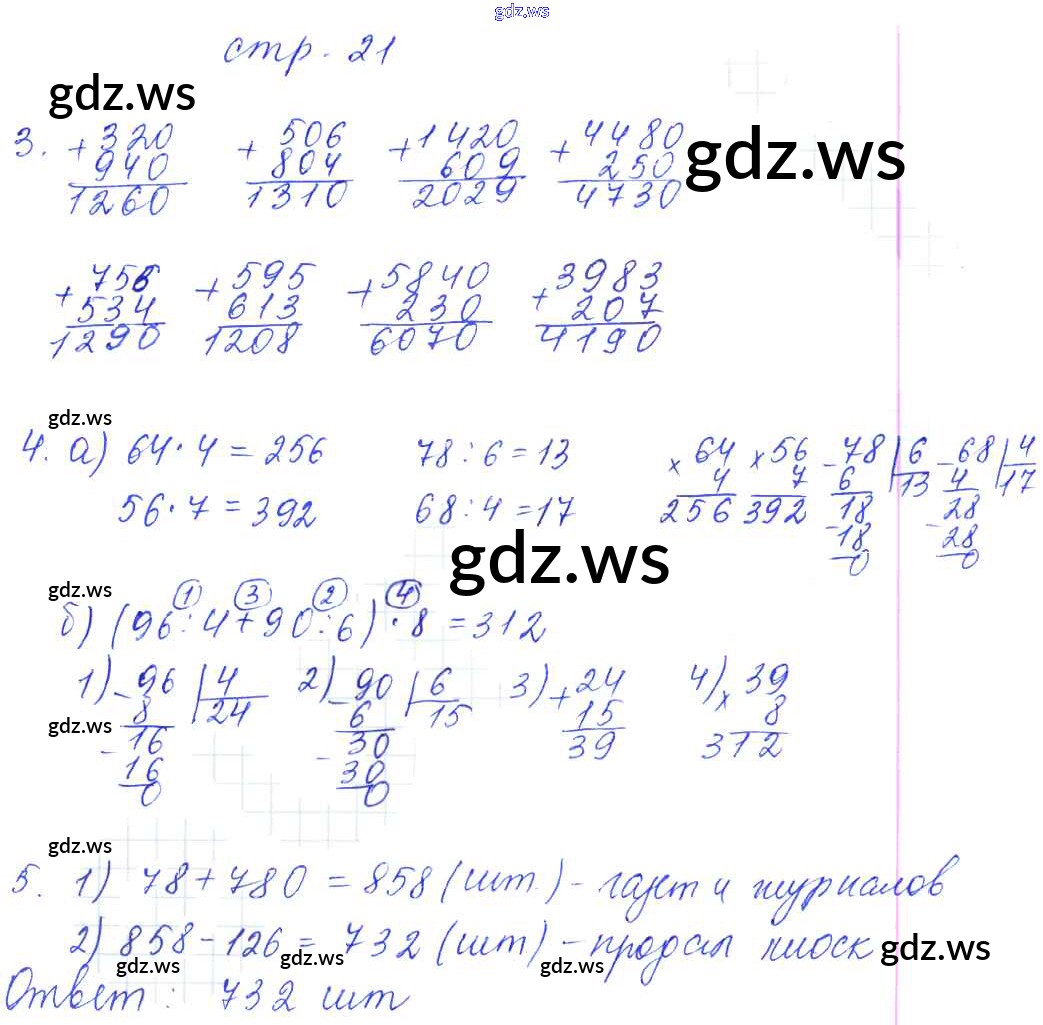 gdz.ws
стр. 21
gdz.ws
3. + 320 + 506 + 1420 + 4480
940 804 609 250
1260 1310 2029 4730
gdz.ws
+ 756 + 595 + 5840 + 3983
534 613 230 207
1290 1208 6070 4190
gdz.ws
4. а) 64 · 4 = 256 78 : 6 = 13 × 64 × 56 - 78 | 6 - 68 | 4
4 7 6 13 4 17
56 · 7 = 392 68 : 4 = 17 256 392 18 28
- 18 - 28
0 0
gdz.ws
gdz.ws
1 3 2 4
б) (96 : 4 + 90 : 6) · 8 = 312
1) - 96 | 4 2) - 90 | 6 3) + 24 4) × 39
8 24 6 15 15 8
gdz.ws
- 16 - 30 39 312
16 30
0 0
gdz.ws
5. 1) 78 + 780 = 858 (шт.) - газет и журналов
2) 858 - 126 = 732 (шт) - продал киоск
gdz.ws gdz.ws gdz.ws gdz.ws
Ответ: 732 шт